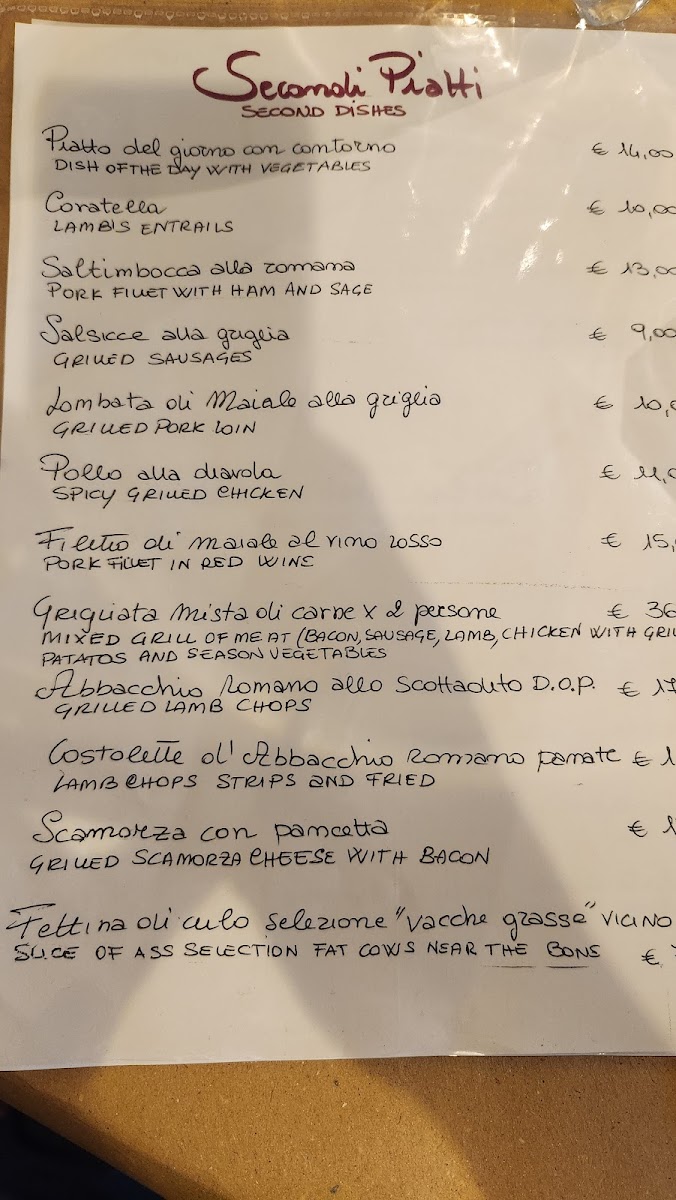 Secondi Piatti
SECOND DISHES
Piatto del giorno con contorno € 14,00
DISH OF THE DAY WITH VEGETABLES
Coratella € 10,00
LAMB'S ENTRAILS
Saltimbocca alla romana € 13,00
PORK FILLET WITH HAM AND SAGE
Salsicce alla griglia € 9,00
GRILLED SAUSAGES
Lombata di Maiale alla griglia € 10,
GRILLED PORK LOIN
Pollo alla diavola € 11,
SPICY GRILLED CHICKEN
Filetto di maiale al vino rosso € 15,
PORK FILLET IN RED WINE
Grigliata mista di carne x 2 persone € 36
MIXED GRILL OF MEAT (BACON, SAUSAGE, LAMB, CHICKEN WITH GRIL
PATATOS AND SEASON VEGETABLES
Abbacchio Romano allo Scottadito D.O.P. € 17
GRILLED LAMB CHOPS
Costolette d'Abbacchio Romano panate € 1
LAMB CHOPS STRIPS AND FRIED
Scamorza con pancetta € 1
GRILLED SCAMORZA CHEESE WITH BACON
Fettina di culo selezione "vacche grasse" VICINO
SLICE OF ASS SELECTION FAT COWS NEAR THE BONE €